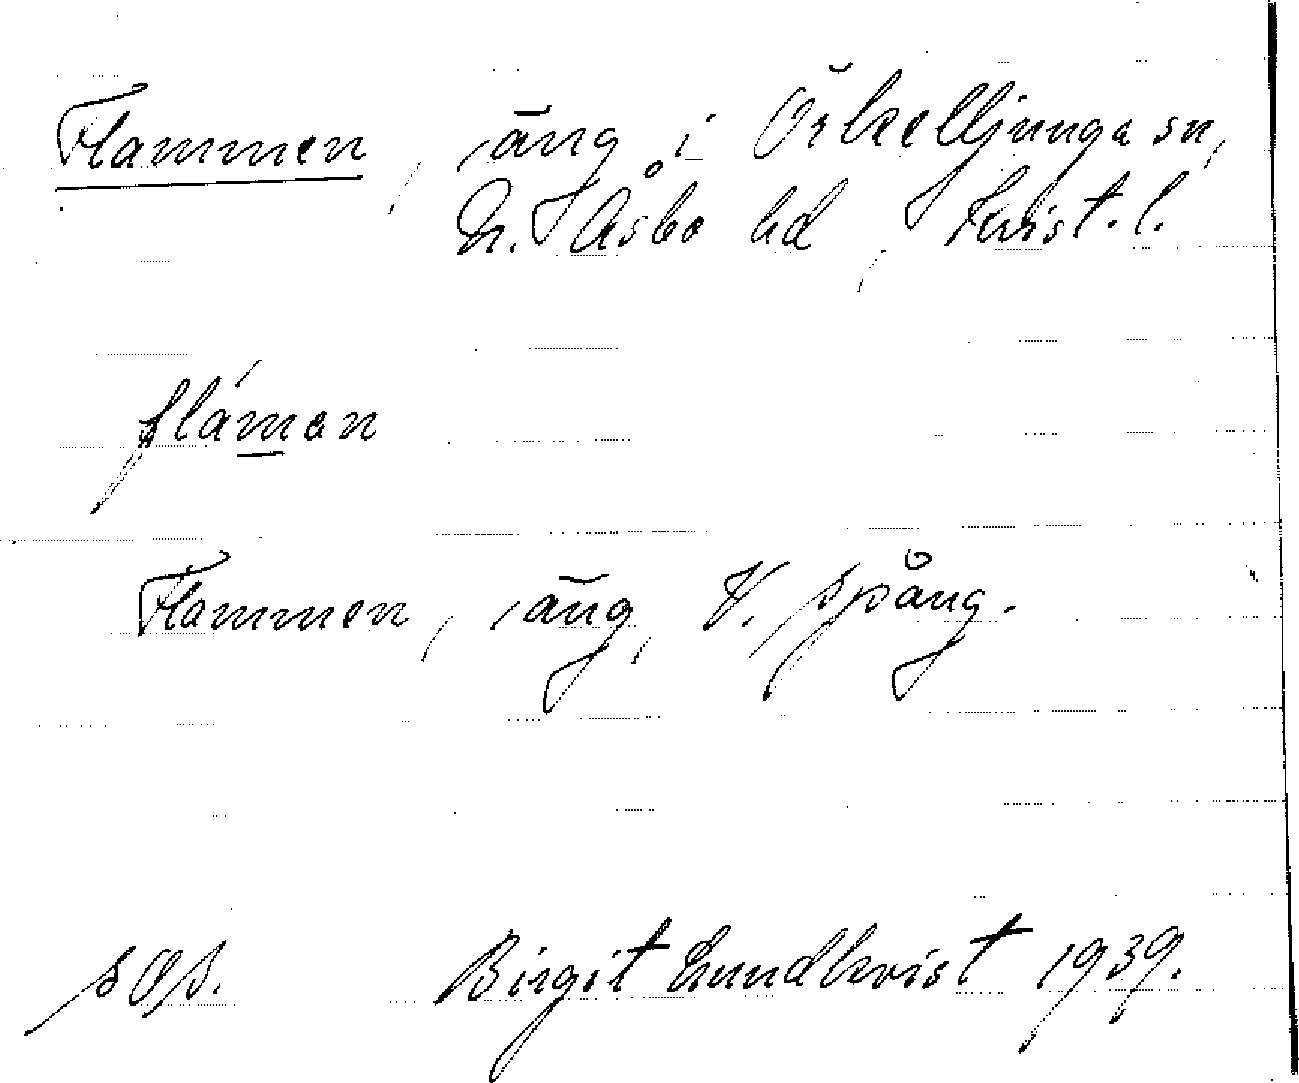 Flammen, äng i Örkelljunga sn,
N. Åsbo hd, Krist. l.
fláman
Flammen, äng, V. Spång.
Birgit Lundkvist 1939.